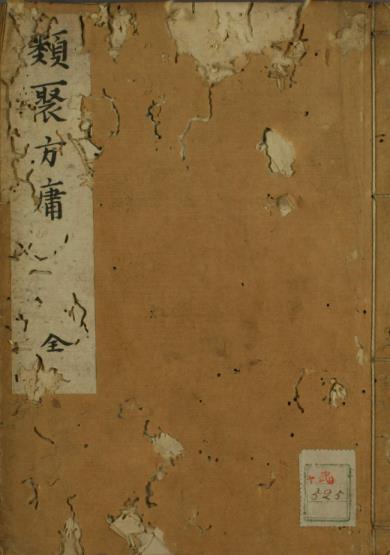 類聚方庸
全
525